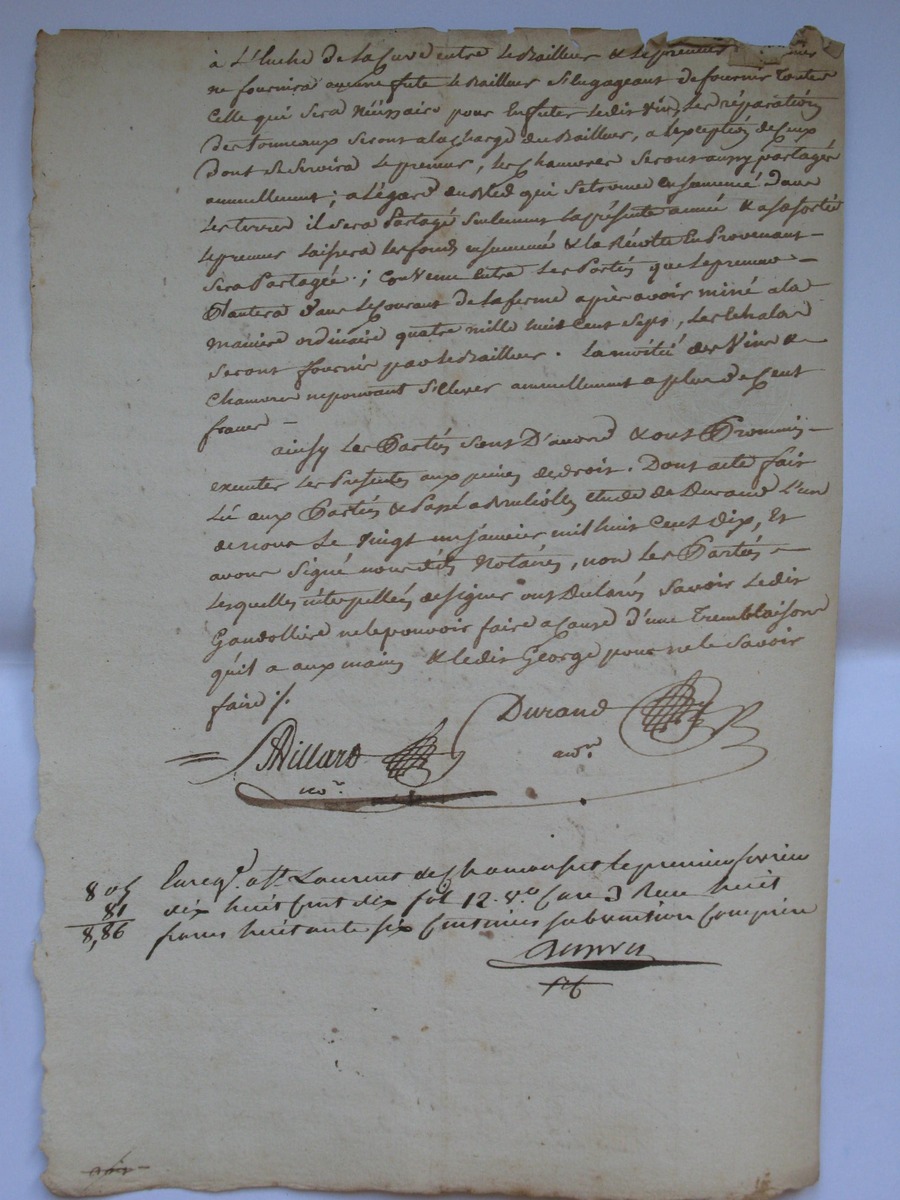 à L'huche de la Cuve entre le Bailleur & le preneur
ne fournira aucune fute le Bailleur s'Engageant de fournir toutes
Celle qui sera Néssaire pour Enfuter ledit Vin, les réparations
des tonneaux seront a la charge du Bailleur, a l'exeption de Ceux
dont se servira le preneur, les Chanvres seront aussy partagés
annuellement; a l'égard du bled qui se trouve ensemencé dans
Les terres il sera Partagé seulement la présente année & a sa sortie
le preneur laissera les fonds ensemencé & la Récolte En Provenant
sera Partagée; Convenu Entre Les Parties que le preneur
Plantera dans le Courant de la ferme après avoir miné a la
maniere ordinaire quatre mille huit Cent seps, les Echalas
seront fournis par le Bailleur. La moitié des Vins &
Chanvres ne pouvant s'Elever annuellement a plus de Cent
francs
ainsy Les Parties sont D'accord & ont Promis
executer les Présentes aux peines de droit. Dont acte fait
Lu aux Parties & Passé a Brulioles etude de Durand L'un
de nous Le Vingt un janvier mil huit Cent dix, Et
avons signé nous dits Notaires, non Les Parties
Lesquelles interpellées de signer ont Declarés savoir ledit
Gandolliere ne le pouvoir faire a Cause d'une Tremblaison
qu'il a aux mains & ledit George pour ne le savoir
faire ./.
Durand
Billard
no.re
Enreg.é a St. Laurent de Chamousset le premier fevrier
805
dix huit Cent dix fol 12 v.o Case 3 Reçu huit
81
francs huitante six Centimes subvention Comprise
8,86